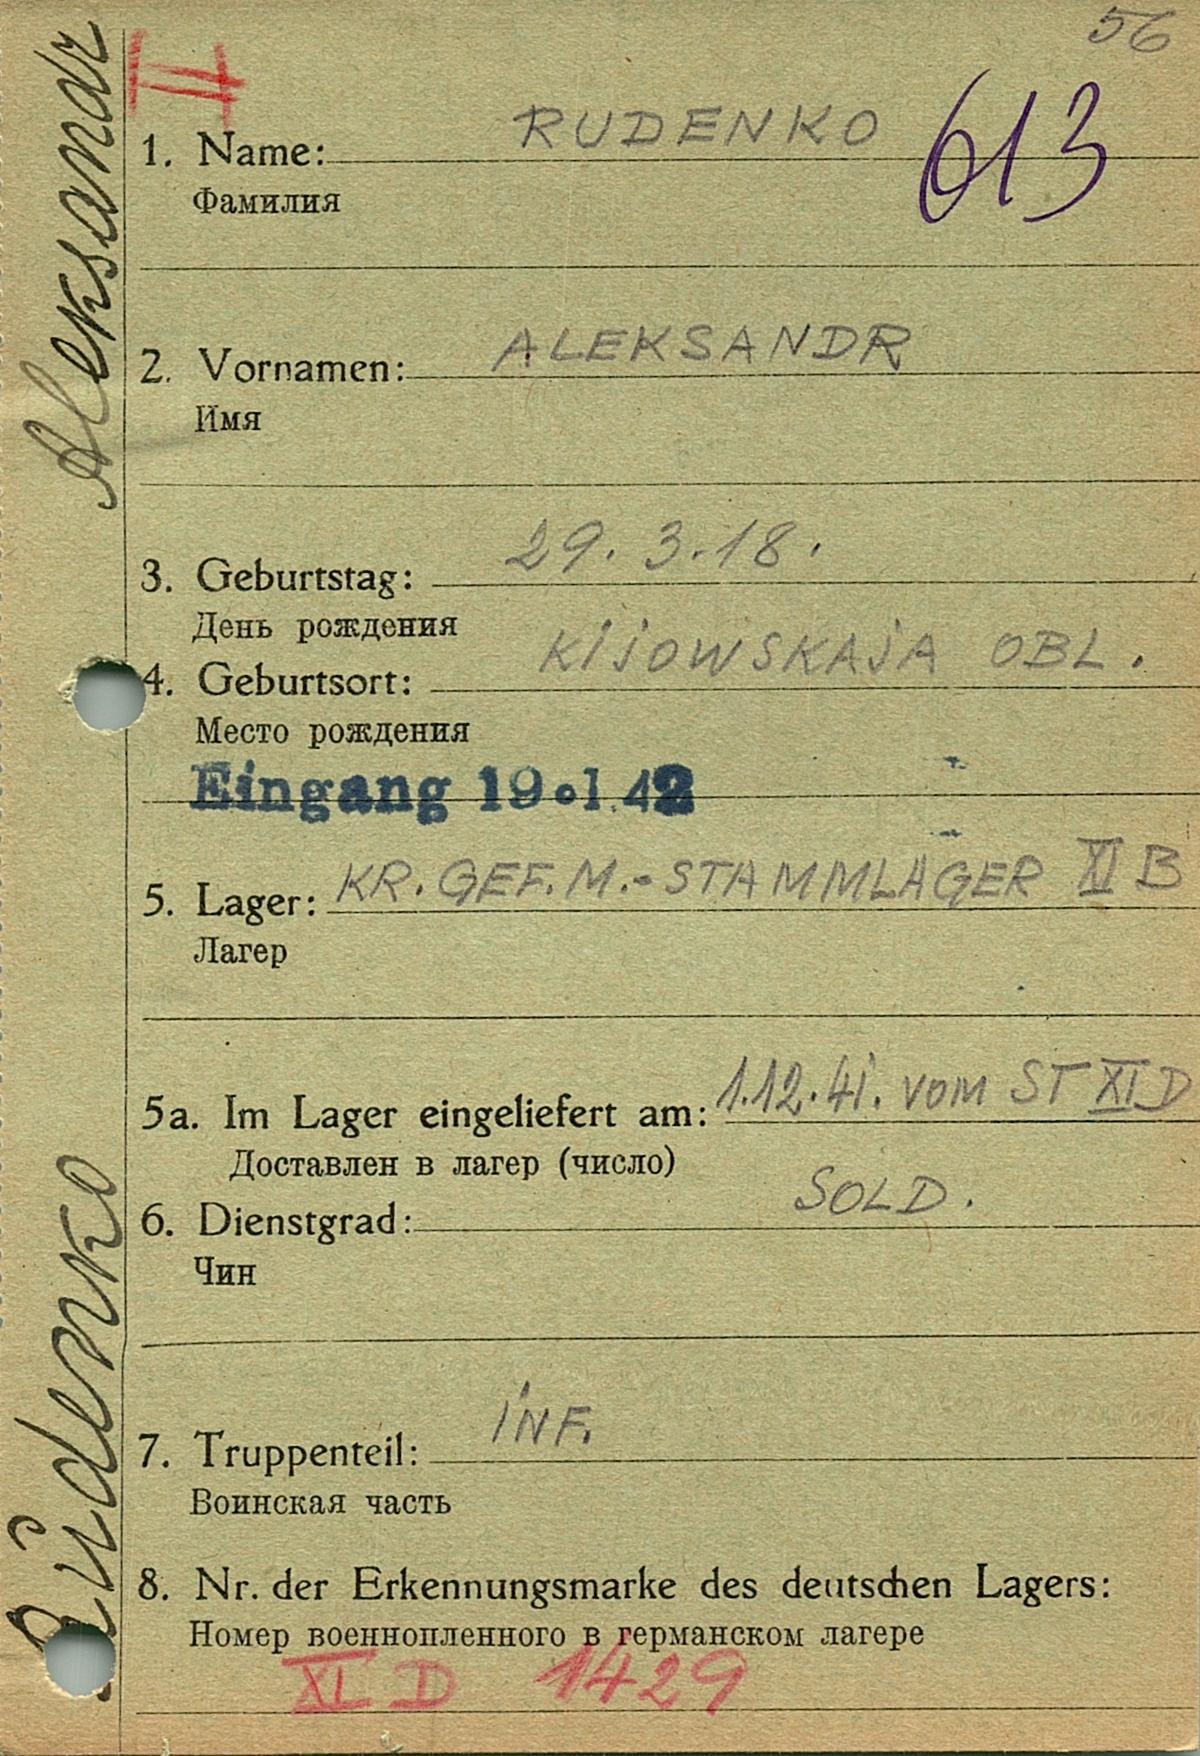 56
II
1. Name: RUDENKO 613
Фамилия
2. Vornamen: ALEKSANDR
Имя
3. Geburtstag: 29. 3. 18.
День рождения
4. Geburtsort: KIJOWSKAJA OBL.
Место рождения
Eingang 19.1.42
5. Lager: KR. GEF. M.-STAMMLAGER XI B
Лагер
5a. Im Lager eingeliefert am: 1.12.41. VOM ST XI D
Доставлен в лагер (число)
6. Dienstgrad: SOLD.
Чин
7. Truppenteil: INF.
Воинская часть
8. Nr. der Erkennungsmarke des deutschen Lagers:
Номер военнопленного в германском лагере
XI D 1429
Rudenko Aleksandr